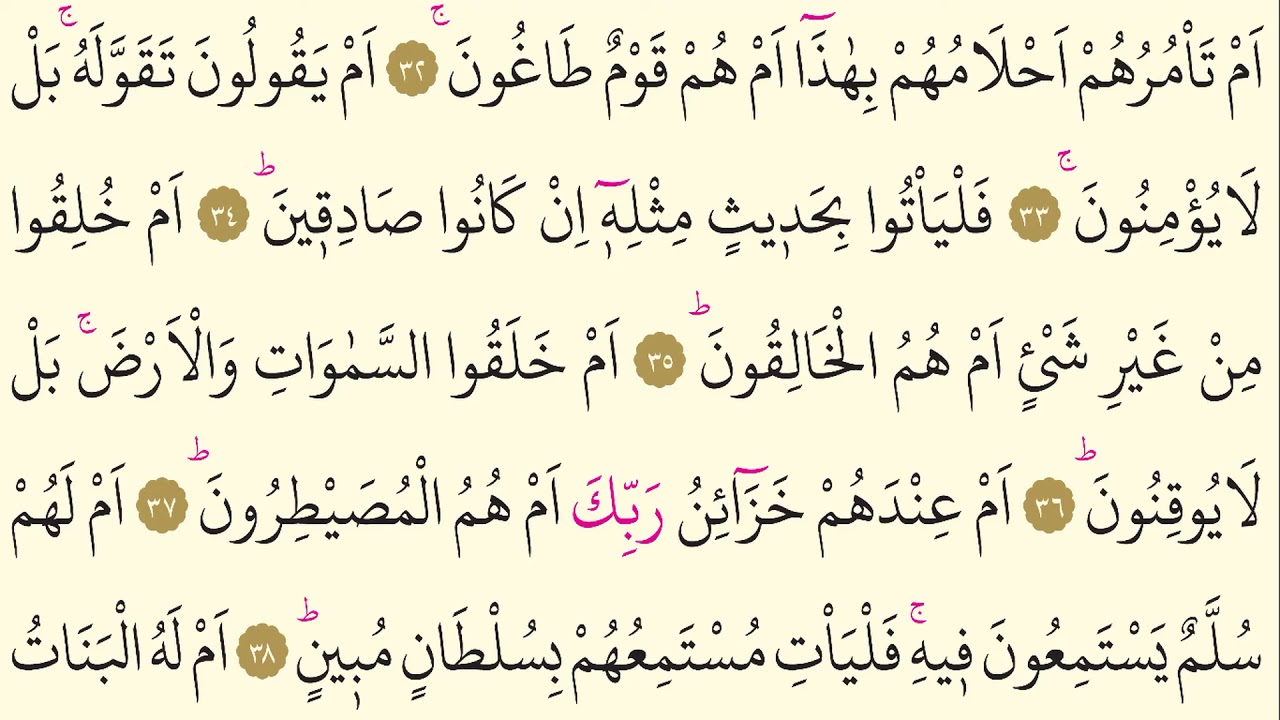 اَمْ تَأْمُرُهُمْ اَحْلَامُهُمْ بِهٰذَٓا اَمْ هُمْ قَوْمٌ طَاغُونَۚ ﴿٣٢﴾ اَمْ يَقُولُونَ تَقَوَّلَهُۚ بَلْ
لَا يُؤْمِنُونَۚ ﴿٣٣﴾ فَلْيَأْتُوا بِحَد۪يثٍ مِثْلِه۪ٓ اِنْ كَانُوا صَادِق۪ينَۜ ﴿٣٤﴾ اَمْ خُلِقُوا
مِنْ غَيْرِ شَيْئٍ اَمْ هُمُ الْخَالِقُونَۜ ﴿٣٥﴾ اَمْ خَلَقُوا السَّمٰوَاتِ وَالْاَرْضَۚ بَلْ
لَا يُوقِنُونَۜ ﴿٣٦﴾ اَمْ عِنْدَهُمْ خَزَٓائِنُ رَبِّكَ اَمْ هُمُ الْمُصَيْطِرُونَۜ ﴿٣٧﴾ اَمْ لَهُمْ
سُلَّمٌ يَسْتَمِعُونَ ف۪يهِۚ فَلْيَأْتِ مُسْتَمِعُهُمْ بِسُلْطَانٍ مُب۪ينٍۜ ﴿٣٨﴾ اَمْ لَهُ الْبَنَاتُ